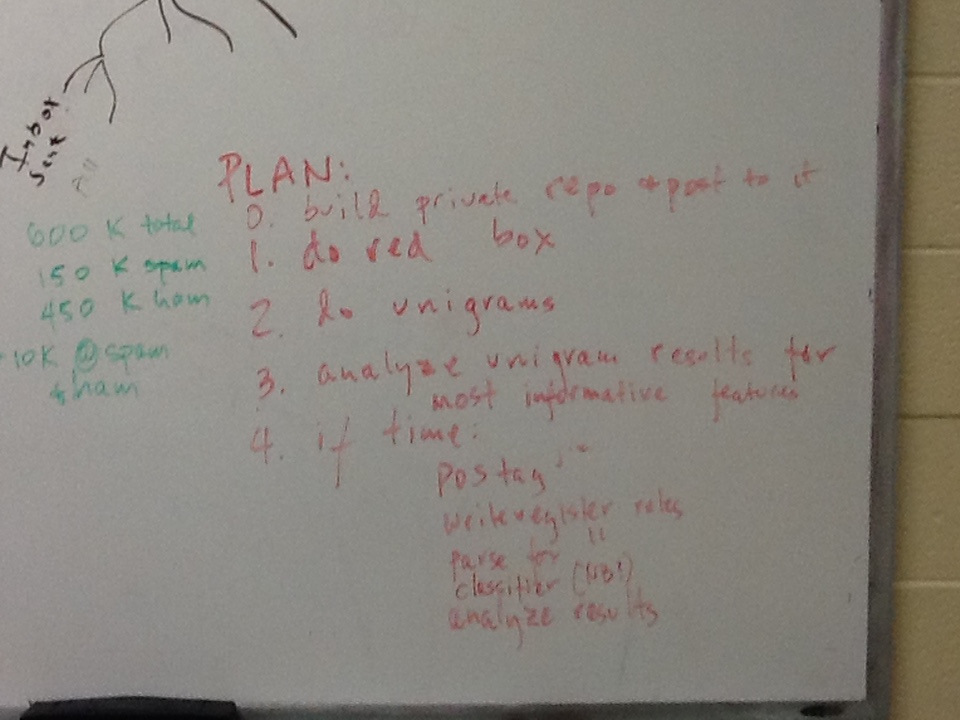 Inbox
Sent
600 K total
150 K spam
450 K ham
10K @ spam
+ ham
PLAN:
0. build private repo + post to it
1. do red box
2. do unigrams
3. analyze unigram results for
most informative features
4. if time:
pos tag
write register rules
parse for "
classifier (NB!)
analyze results